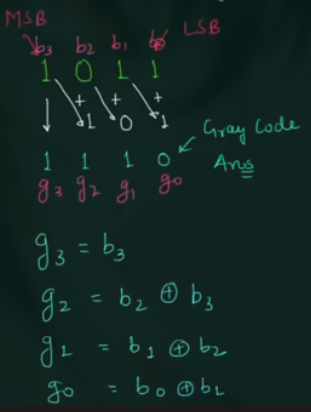 MSB LSB
b3 b2 b1 b0
1 0 1 1
+ + +
1 0 1
1 1 1 0 Gray Code
g3 g2 g1 g0 Ans
g3 = b3
g2 = b2 ⊕ b3
g1 = b1 ⊕ b2
g0 = b0 ⊕ b1